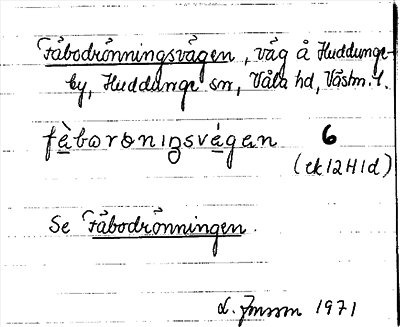 Fäbodrönningsvägen, väg å Huddunge-
by, Huddunge sn, Våla hd, Västm. l.
fä̀boronɩŋsvá̈gan 6
(ek 12 H 1 d)
Se Fäbodrönningen.
L. Jnsson 1971